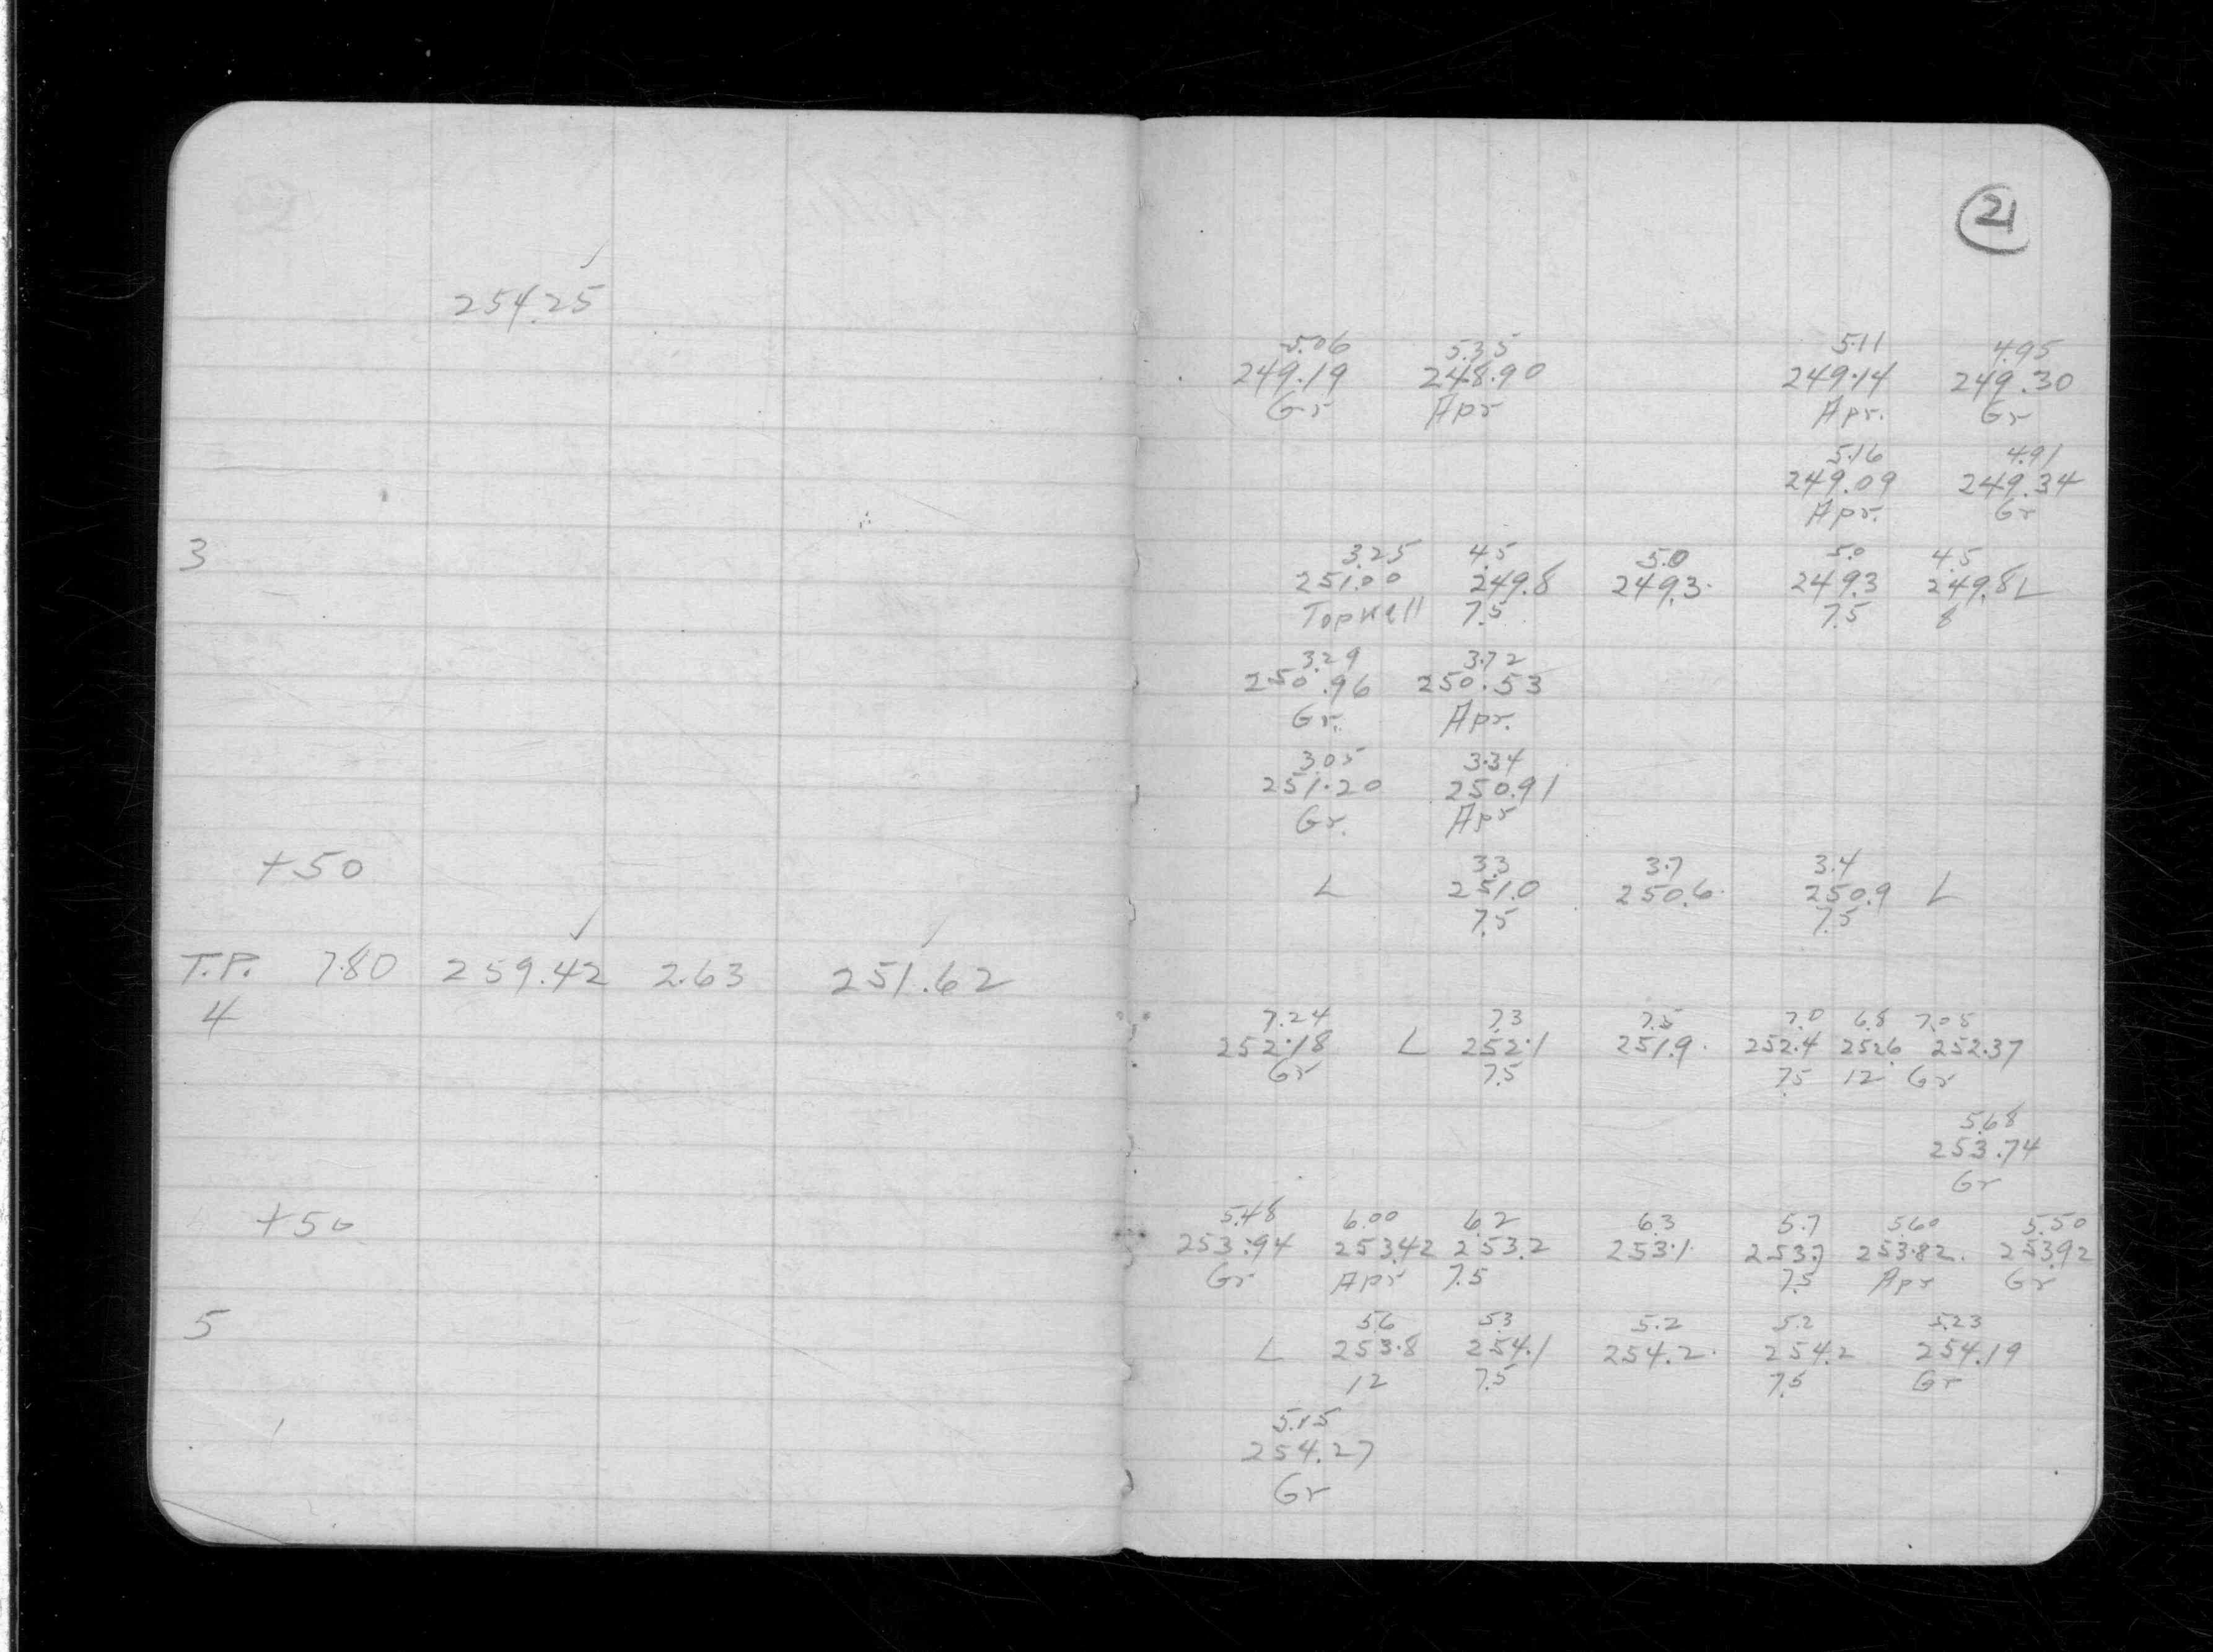 21
254.25
5.06 5.35 5.11 4.95
249.19 248.90 249.14 249.30
Gr Apr Apr. Gr
5.16 4.91
249.09 249.34
Apr. Gr
3
3.25 4.5 5.0 5.0 4.5
251.00 249.8 249.3 249.3 249.8 L
Topwall 7.5 7.5 8
3.29 3.72
250.96 250.53
Gr. Apr.
3.05 3.34
251.20 250.91
Gr. Apr
+50
3.3 3.7 3.4
L 251.0 250.6 250.9 L
7.5 7.5
T.P. 7.80 259.42 2.63 251.62
4
7.24 7.3 7.5 7.0 6.8 7.05
252.18 L 252.1 251.9 252.4 252.6 252.37
Gr 7.5 7.5 12 Gr
5.68
253.74
Gr
+50
5.48 6.00 6.2 6.3 5.7 5.60 5.50
253.94 253.42 253.2 253.1 253.7 253.82 253.92
Gr Apr 7.5 7.5 Apr Gr
5
5.6 5.3 5.2 5.2 5.23
L 253.8 254.1 254.2 254.2 254.19
12 7.5 7.5 Gr
5.15
254.27
Gr